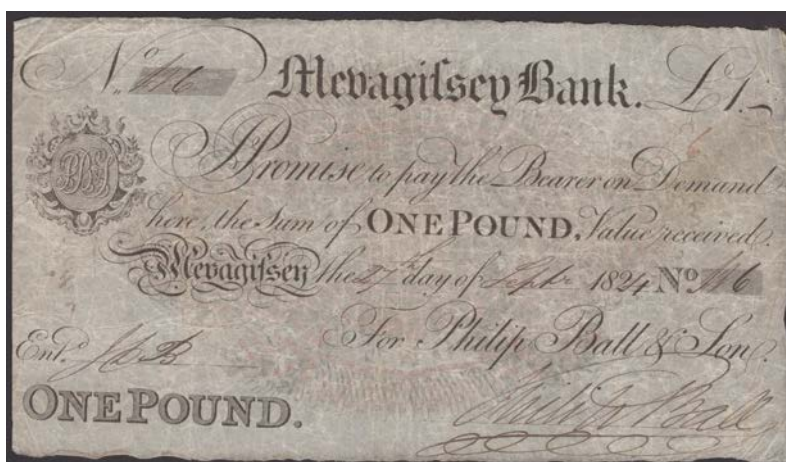 No. 116 Mevagiſsey Bank. £1.—
I Promise to pay the Bearer on Demand
here, the Sum of ONE POUND, Value received.
Mevagiſsey the 27th day of Septr 1824 No. 116
For Philip Ball & Son.
Entd.
ONE POUND. Philip Ball